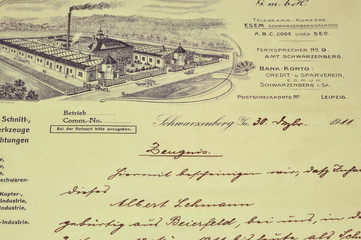 G.m.b.H.
TELEGRAMM-ADRESSE
ESEM SCHWARZENBERGSACHSEN
A.B.C. CODE USED 5ED.
FERNSPRECHER No 9.
AMT SCHWARZENBERG.
BANK-KONTO:
CREDIT- U SPARVEREIN,
E.G.M.U.H.
SCHWARZENBERG I. SA.
POSTSCHECKKONTO No LEIPZIG.
Schnitt-,
erkzeuge
chtungen
Betrieb
Comm.-No.
Bei der Antwort bitte anzugeben.
Schwarzenberg i/Sa. 30. Dezbr. 1911
Zeugnis.
Hiermit bescheinigen wir, daß
dieses
Albert Lehmann
gebürtig aus Beierfeld, bei uns, in d
1911 bis heute als
Kupfer-,
Industrie,
-Industrie,
-Industrie.